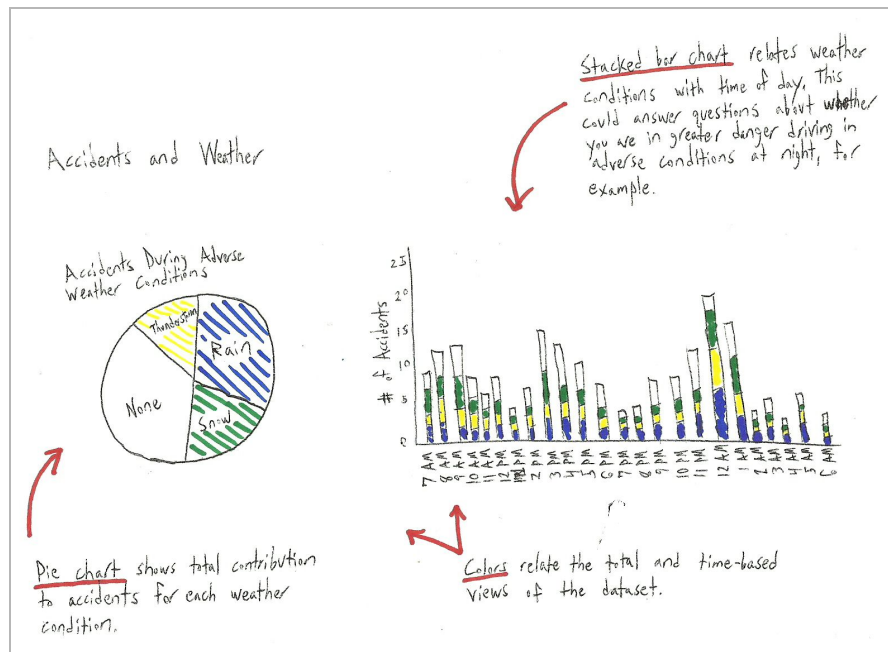 Stacked bar chart relates weather
conditions with time of day. This
could answer questions about whether
you are in greater danger driving in
adverse conditions at night, for
example.
Accidents and Weather
Accidents During Adverse
Weather Conditions
Thunderstorm
Rain
None
Snow
# of Accidents
25
20
15
10
5
0
7 AM
8 AM
9 AM
10 AM
11 AM
12 PM
PM
2 PM
3 PM
4 PM
5 PM
6 PM
7 PM
8 PM
9 PM
10 PM
11 PM
12 AM
1 AM
2 AM
3 AM
4 AM
5 AM
6 AM
Pie chart shows total contribution
to accidents for each weather
condition.
Colors relate the total and time-based
views of the dataset.